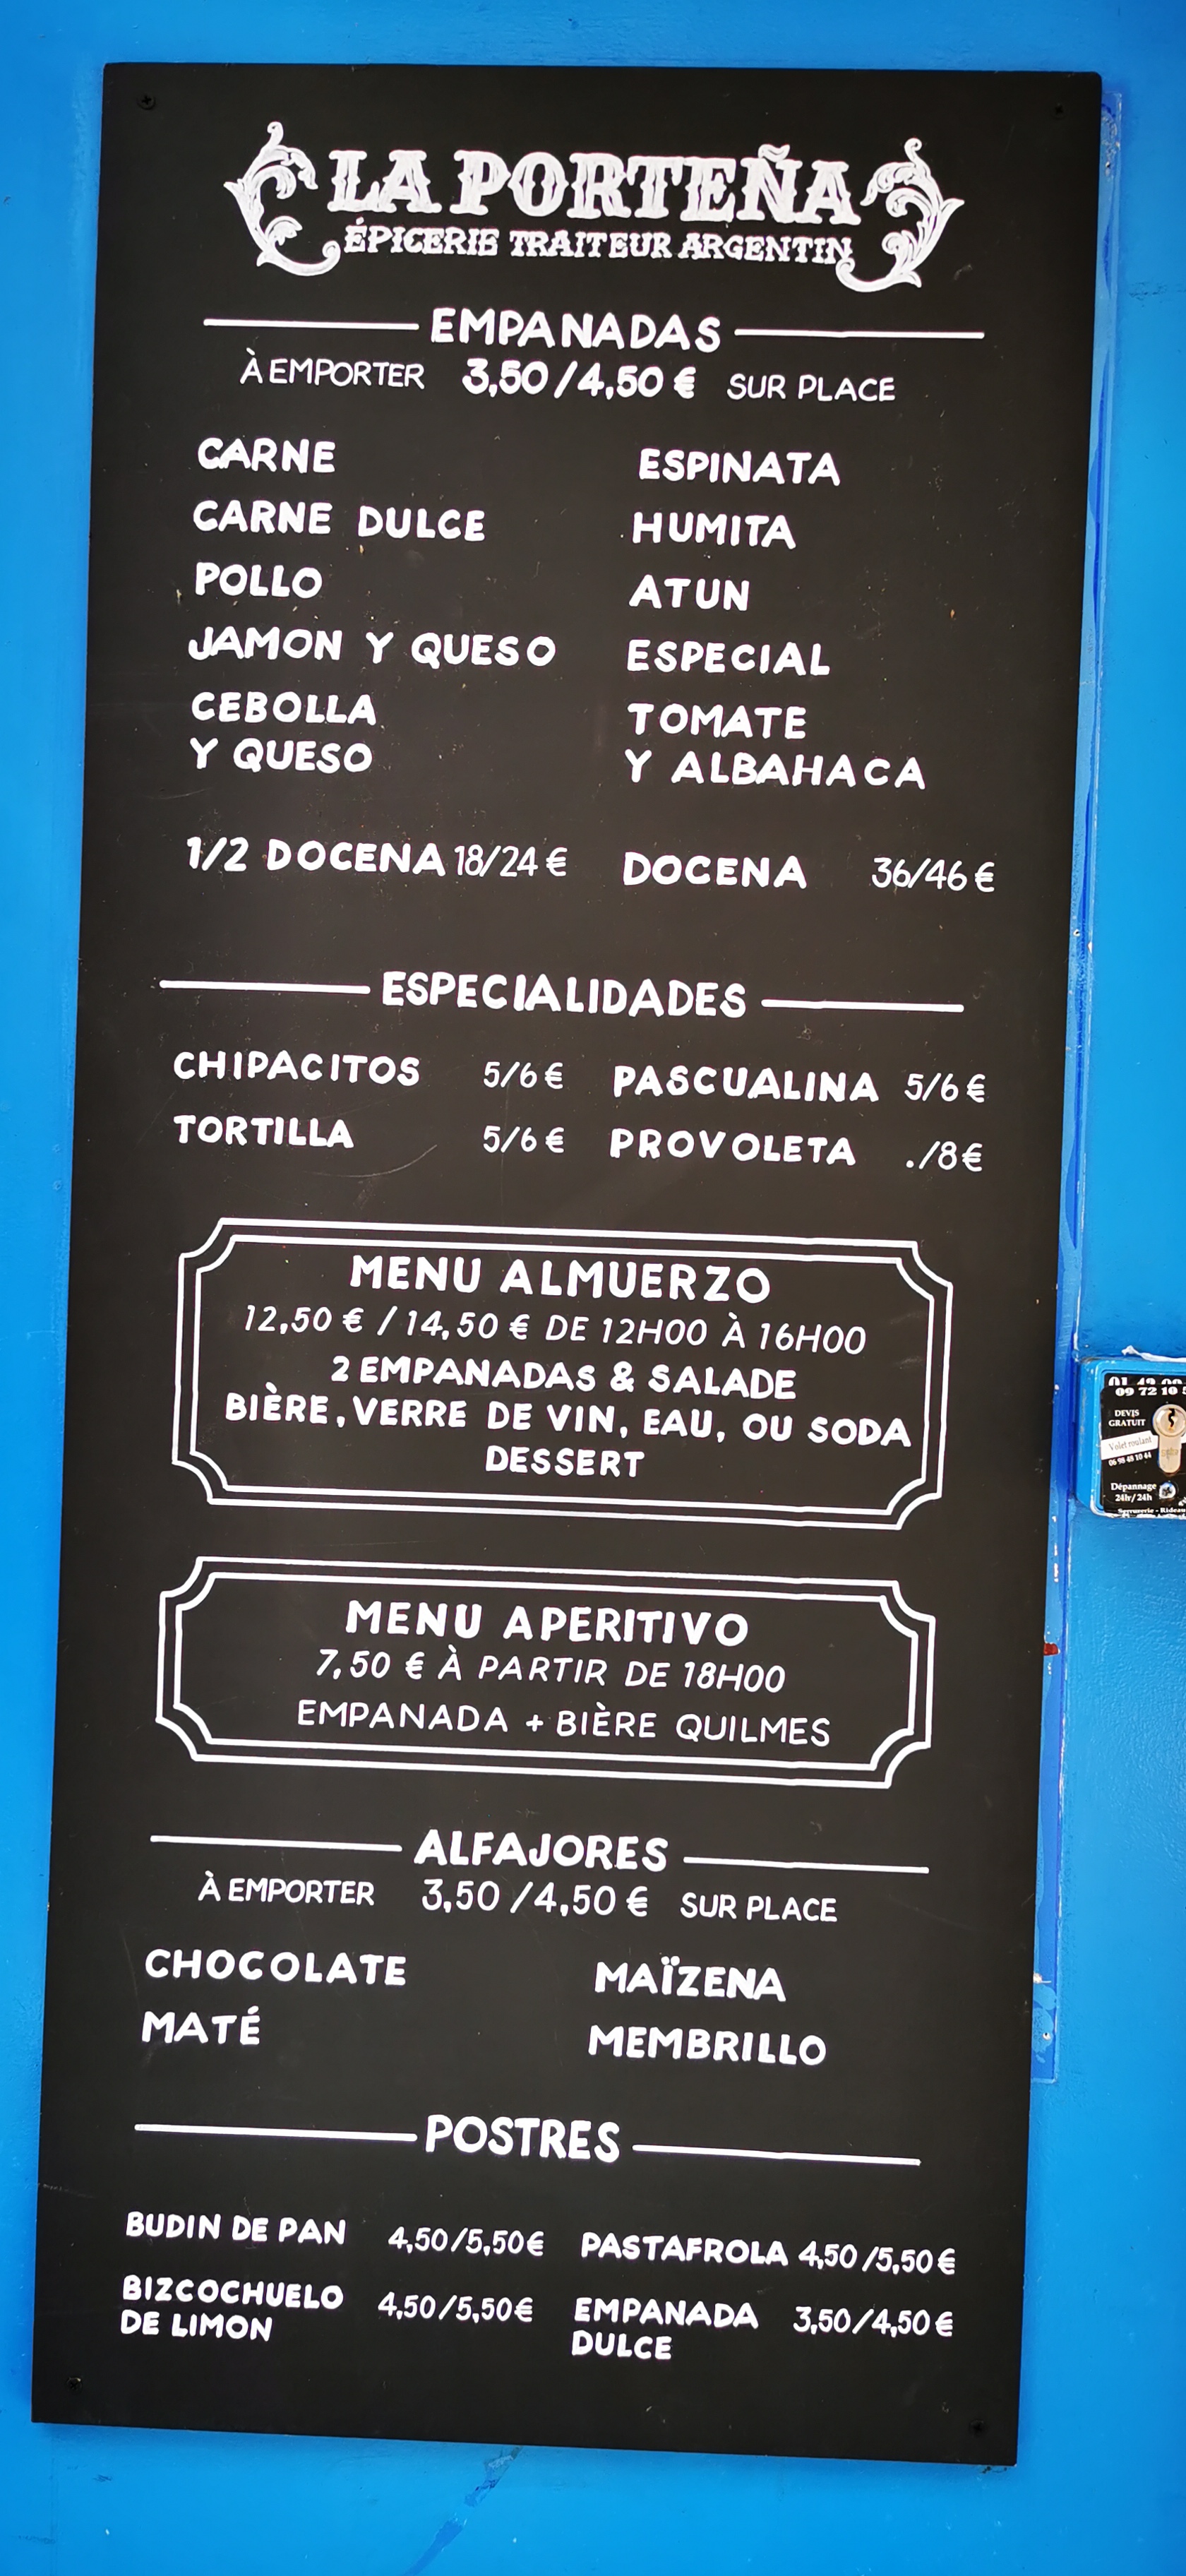 LA PORTEÑA
ÉPICERIE TRAITEUR ARGENTIN
EMPANADAS
À EMPORTER 3,50/4,50 € SUR PLACE
CARNE ESPINATA
CARNE DULCE HUMITA
POLLO ATUN
JAMON Y QUESO ESPECIAL
CEBOLLA TOMATE
Y QUESO Y ALBAHACA
1/2 DOCENA 18/24 € DOCENA 36/46 €
ESPECIALIDADES
CHIPACITOS 5/6 € PASCUALINA 5/6 €
TORTILLA 5/6 € PROVOLETA ./8 €
MENU ALMUERZO
12,50 € / 14,50 € DE 12H00 À 16H00
2 EMPANADAS & SALADE
BIÈRE, VERRE DE VIN, EAU, OU SODA
DESSERT
MENU APERITIVO
7,50 € À PARTIR DE 18H00
EMPANADA + BIÈRE QUILMES
ALFAJORES
À EMPORTER 3,50 / 4,50 € SUR PLACE
CHOCOLATE MAÏZENA
MATÉ MEMBRILLO
POSTRES
BUDIN DE PAN 4,50/5,50€ PASTAFROLA 4,50/5,50€
BIZCOCHUELO 4,50/5,50€ EMPANADA 3,50/4,50€
DE LIMON DULCE
09 72 10
DEVIS
GRATUIT
Volet roulant
06 98 49 10 44
Dépannage
24h/24h
Serrurerie -